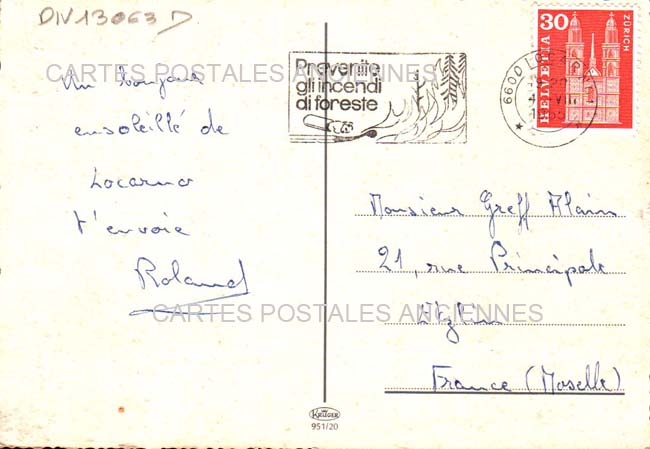 DIV13063D
Prevenite
gli incendi
di foreste
6600 LOCARNO
30
HELVETIA
ZÜRICH
CARTES POSTALES ANCIENNES
Un bonjour
ensoleillé de
Locarno
t'envoie
Roland
Monsieur Greff Alain
21, rue Principale
France (Moselle)
CARTES POSTALES ANCIENNES
KRÜGER
951/20